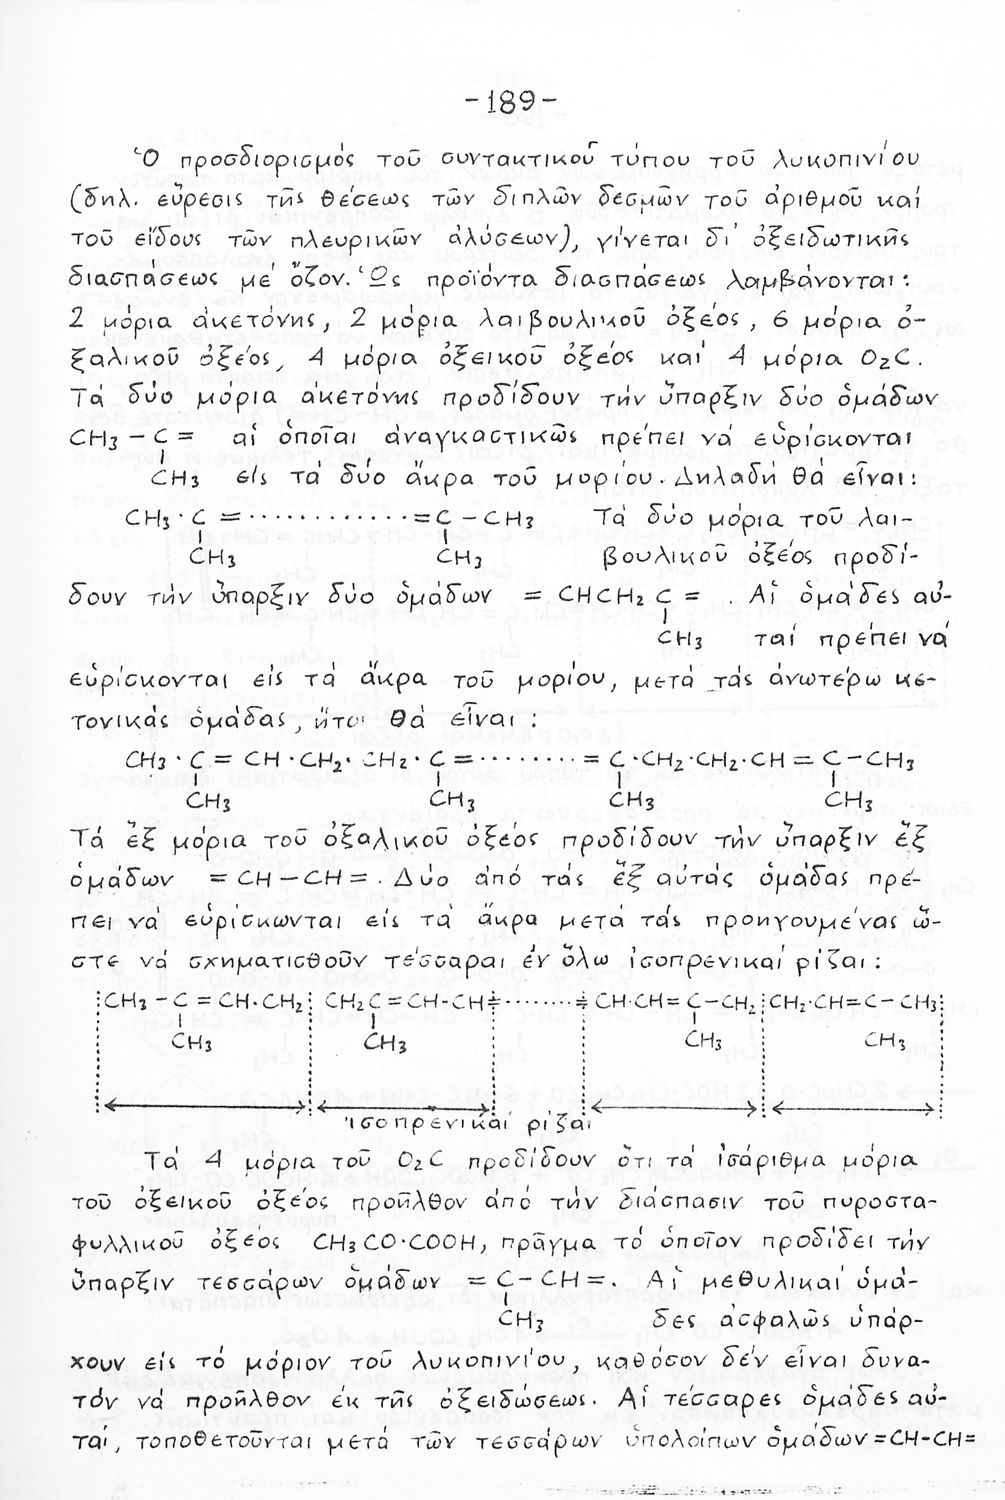 -189-
Ὁ προσδιορισμός τοῦ συντακτικοῦ τύπου τοῦ λυκοπινίου
(δηλ. εὕρεσις τῆς θέσεως τῶν διπλῶν δεσμῶν τοῦ ἀριθμοῦ καί
τοῦ εἴδους τῶν πλευρικῶν ἁλύσεων), γίνεται δι' ὀξειδωτικῆς
διασπάσεως μέ ὄζον. Ὡς προϊόντα διασπάσεως λαμβάνονται:
2 μόρια ἀκετόνης, 2 μόρια λαιβουλικοῦ ὀξέος, 6 μόρια ὀ-
ξαλικοῦ ὀξέος, 4 μόρια ὀξεικοῦ ὀξέος καί 4 μόρια O₂C.
Τά δύο μόρια ἀκετόνης προδίδουν τήν ὕπαρξιν δύο ὁμάδων
CH₃ - C = αἱ ὁποῖαι ἀναγκαστικῶς πρέπει νά εὑρίσκονται
CH₃ εἰς τά δύο ἄκρα τοῦ μορίου. Δηλαδή θά εἶναι:
CH₃ · C = ············ = C - CH₃ Τά δύο μόρια τοῦ λαι-
CH₃ CH₃ βουλικοῦ ὀξέος προδί-
δουν τήν ὕπαρξιν δύο ὁμάδων = CHCH₂ C = . Αἱ ὁμάδες αὐ-
CH₃ ταί πρέπει νά
εὑρίσκονται εἰς τά ἄκρα τοῦ μορίου, μετά τάς ἀνωτέρω κε-
τονικάς ὁμάδας, ἤτοι θά εἶναι:
CH₃ · C = CH · CH₂ · CH₂ · C = ········ = C · CH₂ · CH₂ · CH = C - CH₃
CH₃ CH₃ CH₃ CH₃
Τά ἕξ μόρια τοῦ ὀξαλικοῦ ὀξέος προδίδουν τήν ὕπαρξιν ἕξ
ὁμάδων = CH - CH = . Δύο ἀπό τάς ἕξ αὐτάς ὁμάδας πρέ-
πει νά εὑρίσκωνται εἰς τά ἄκρα μετά τάς προηγουμένας ὥ-
στε νά σχηματισθοῦν τέσσαραι ἐν ὅλω ἰσοπρενικαί ρίζαι:
CH₃ - C = CH·CH₂ CH₂ C = CH-CH = ········ = CH·CH = C - CH₂ CH₂·CH = C - CH₃
CH₃ CH₃ CH₃ CH₃
Ἰσοπρενικαί ρίζαι
Τά 4 μόρια τοῦ O₂C προδίδουν ὅτι τά ἰσάριθμα μόρια
τοῦ ὀξεικοῦ ὀξέος προῆλθον ἀπό τήν διάσπασιν τοῦ πυροστα-
φυλλικοῦ ὀξέος CH₃CO·COOH, πρᾶγμα τό ὁποῖον προδίδει τήν
ὕπαρξιν τεσσάρων ὁμάδων = C - CH = . Αἱ μεθυλικαί ὁμά-
CH₃ δες ἀσφαλῶς ὑπάρ-
χουν εἰς τό μόριον τοῦ λυκοπινίου, καθόσον δέν εἶναι δυνα-
τόν νά προῆλθον ἐκ τῆς ὀξειδώσεως. Αἱ τέσσαρες ὁμάδες αὐ-
ταί, τοποθετοῦνται μετά τῶν τεσσάρων ὑπολοίπων ὁμάδων =CH-CH=